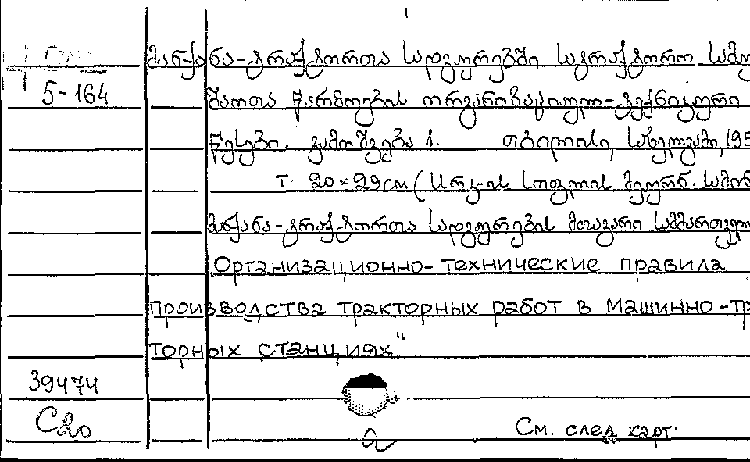 მანქანა-ტრაქტორთა სადგურებში სატრაქტორო სამუ
5-164
შაოთა წარმოების ორგანიზაციულ-ტექნიკური
წესები. გამოშვება 1. თბილისი, სახელგამი, 195
т. 20×29см (სსრკ-ის სოფლის მეურნ. სამინ
მანქანა-ტრაქტორთა სადგურების მთავარი სამმართველო
Организационно-технические правила
производства тракторных работ в машинно-тра
торных станциях"
39474
С20
2
См. след карт.